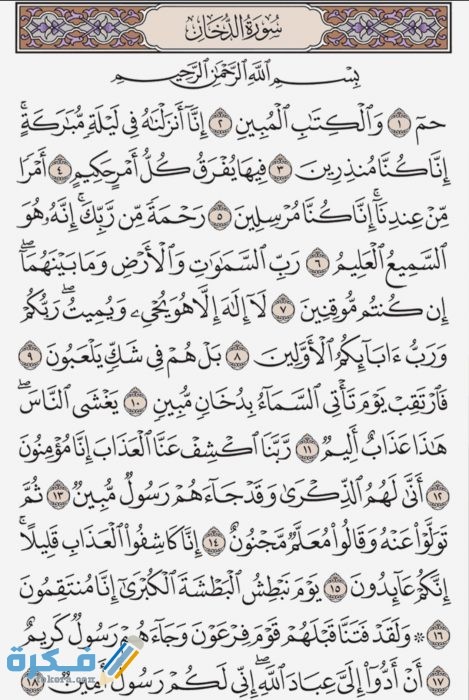 سُورَةُ الدُّخَانِ
بِسْمِ اللَّهِ الرَّحْمَٰنِ الرَّحِيمِ
حمٓ ١ وَٱلْكِتَٰبِ ٱلْمُبِينِ ٢ إِنَّآ أَنزَلْنَٰهُ فِى لَيْلَةٍ مُّبَٰرَكَةٍۚ
إِنَّا كُنَّا مُنذِرِينَ ٣ فِيهَا يُفْرَقُ كُلُّ أَمْرٍ حَكِيمٍ ٤ أَمْرًا
مِّنْ عِندِنَآۚ إِنَّا كُنَّا مُرْسِلِينَ ٥ رَحْمَةً مِّن رَّبِّكَۚ إِنَّهُۥ هُوَ
ٱلسَّمِيعُ ٱلْعَلِيمُ ٦ رَبِّ ٱلسَّمَٰوَٰتِ وَٱلْأَرْضِ وَمَا بَيْنَهُمَآۖ
إِن كُنتُم مُّوقِنِينَ ٧ لَآ إِلَٰهَ إِلَّا هُوَ يُحْىِۦ وَيُمِيتُۖ رَبُّكُمْ
وَرَبُّ ءَابَآئِكُمُ ٱلْأَوَّلِينَ ٨ بَلْ هُمْ فِى شَكٍّ يَلْعَبُونَ ٩
فَٱرْتَقِبْ يَوْمَ تَأْتِى ٱلسَّمَآءُ بِدُخَانٍ مُّبِينٍ ١٠ يَغْشَى ٱلنَّاسَۖ
هَٰذَا عَذَابٌ أَلِيمٌ ١١ رَّبَّنَا ٱكْشِفْ عَنَّا ٱلْعَذَابَ إِنَّا مُؤْمِنُونَ
١٢ أَنَّىٰ لَهُمُ ٱلذِّكْرَىٰ وَقَدْ جَآءَهُمْ رَسُولٌ مُّبِينٌ ١٣ ثُمَّ
تَوَلَّوْا۟ عَنْهُ وَقَالُوا۟ مُعَلَّمٌ مَّجْنُونٌ ١٤ إِنَّا كَاشِفُوا۟ ٱلْعَذَابِ قَلِيلًاۚ
إِنَّكُمْ عَآئِدُونَ ١٥ يَوْمَ نَبْطِشُ ٱلْبَطْشَةَ ٱلْكُبْرَىٰٓ إِنَّا مُنتَقِمُونَ
١٦ ۞ وَلَقَدْ فَتَنَّا قَبْلَهُمْ قَوْمَ فِرْعَوْنَ وَجَآءَهُمْ رَسُولٌ كَرِيمٌ
١٧ أَنْ أَدُّوٓا۟ إِلَىَّ عِبَادَ ٱللَّهِۖ إِنِّى لَكُمْ رَسُولٌ أَمِينٌ ١٨
فكرة